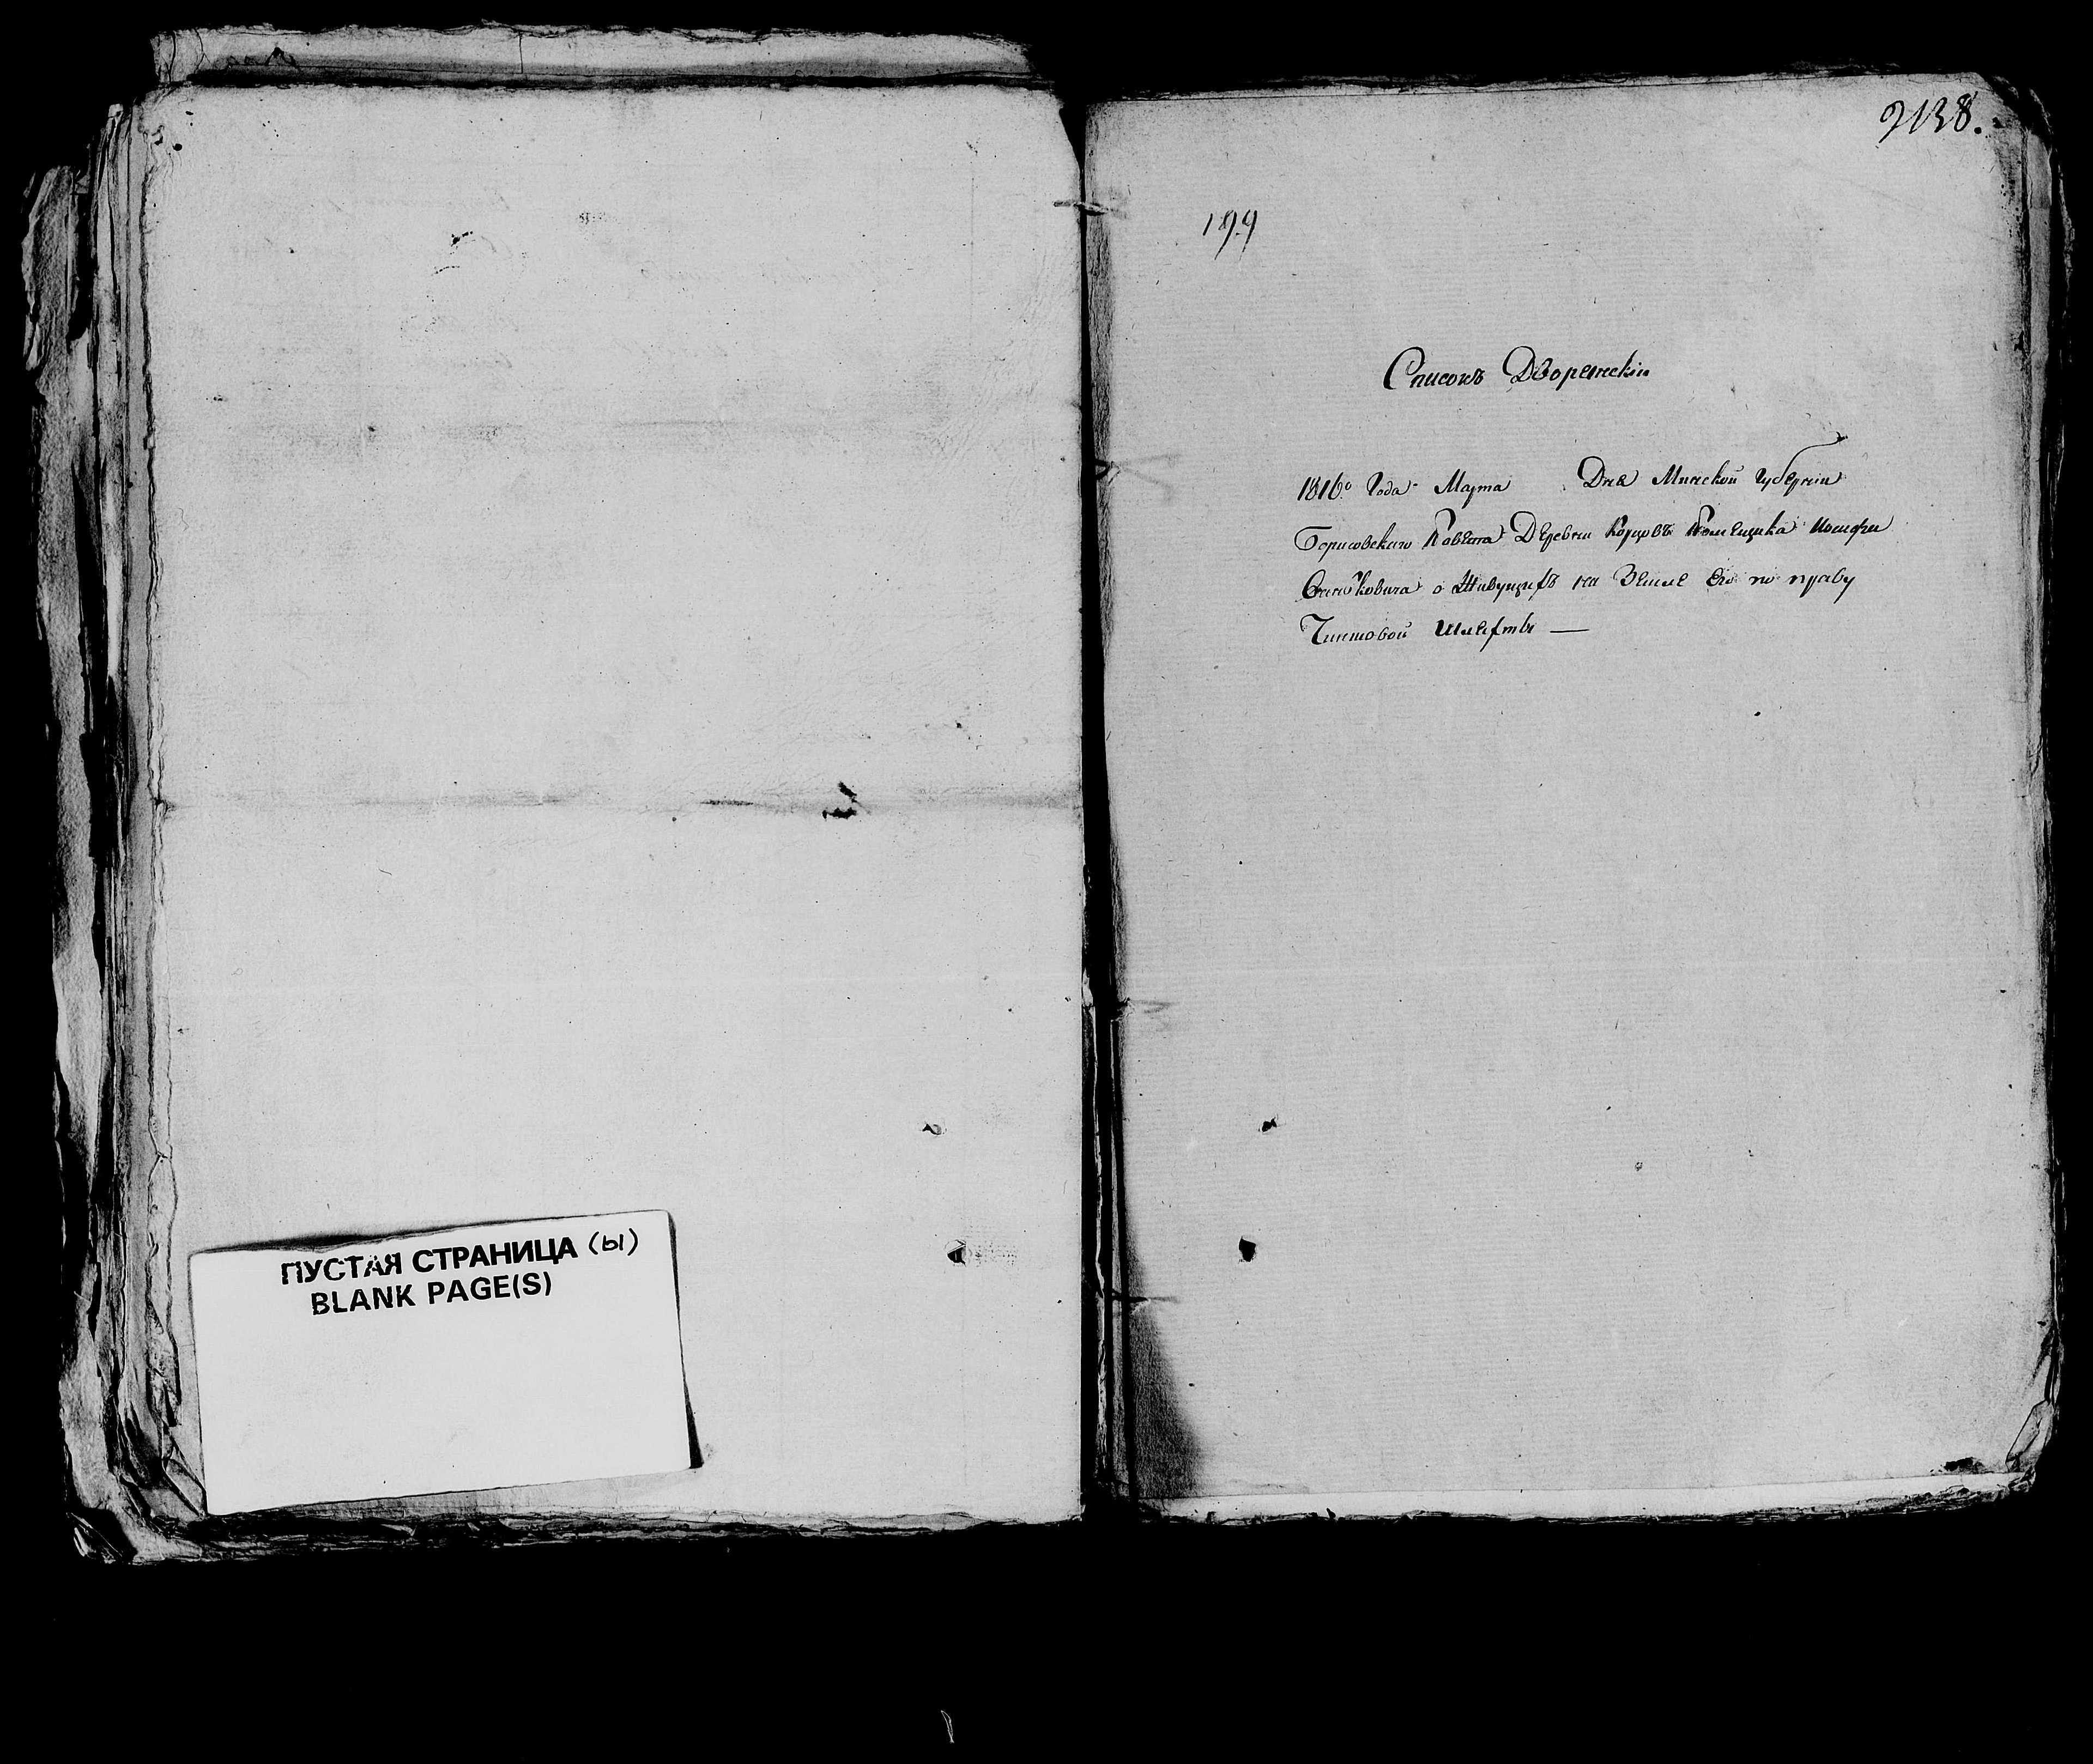 ПУСТАЯ СТРАНИЦА (Ы)
BLANK PAGE(S)
2138.
199
Списокъ Дворянскiи
1816го Года Марта Дня Минской Губернiи
Борисовскаго Повѣта Деревни Помещика Иосифа
о Живущихъ на Земле Его по праву
Чиншовой Шляхты —